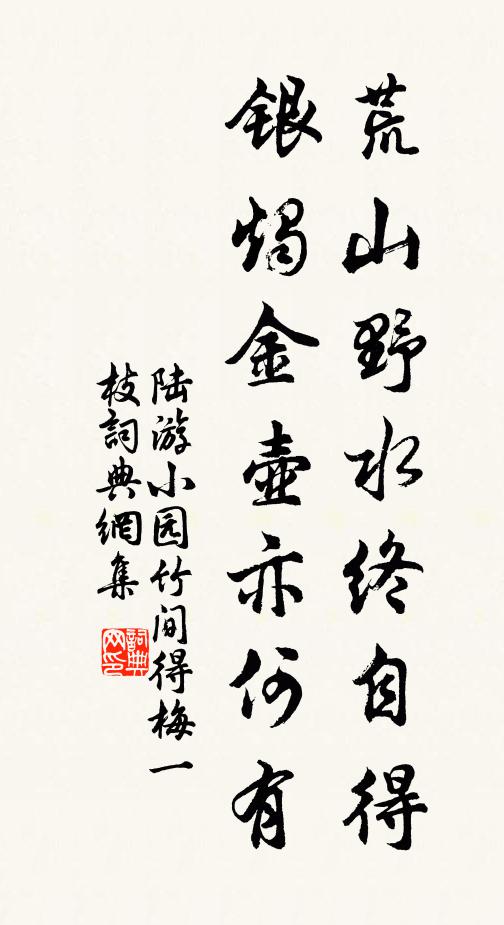 荒山野水终自得
银烛金壶亦何有
陆游小园竹间得梅一
枝詞典網集
詞典
网印